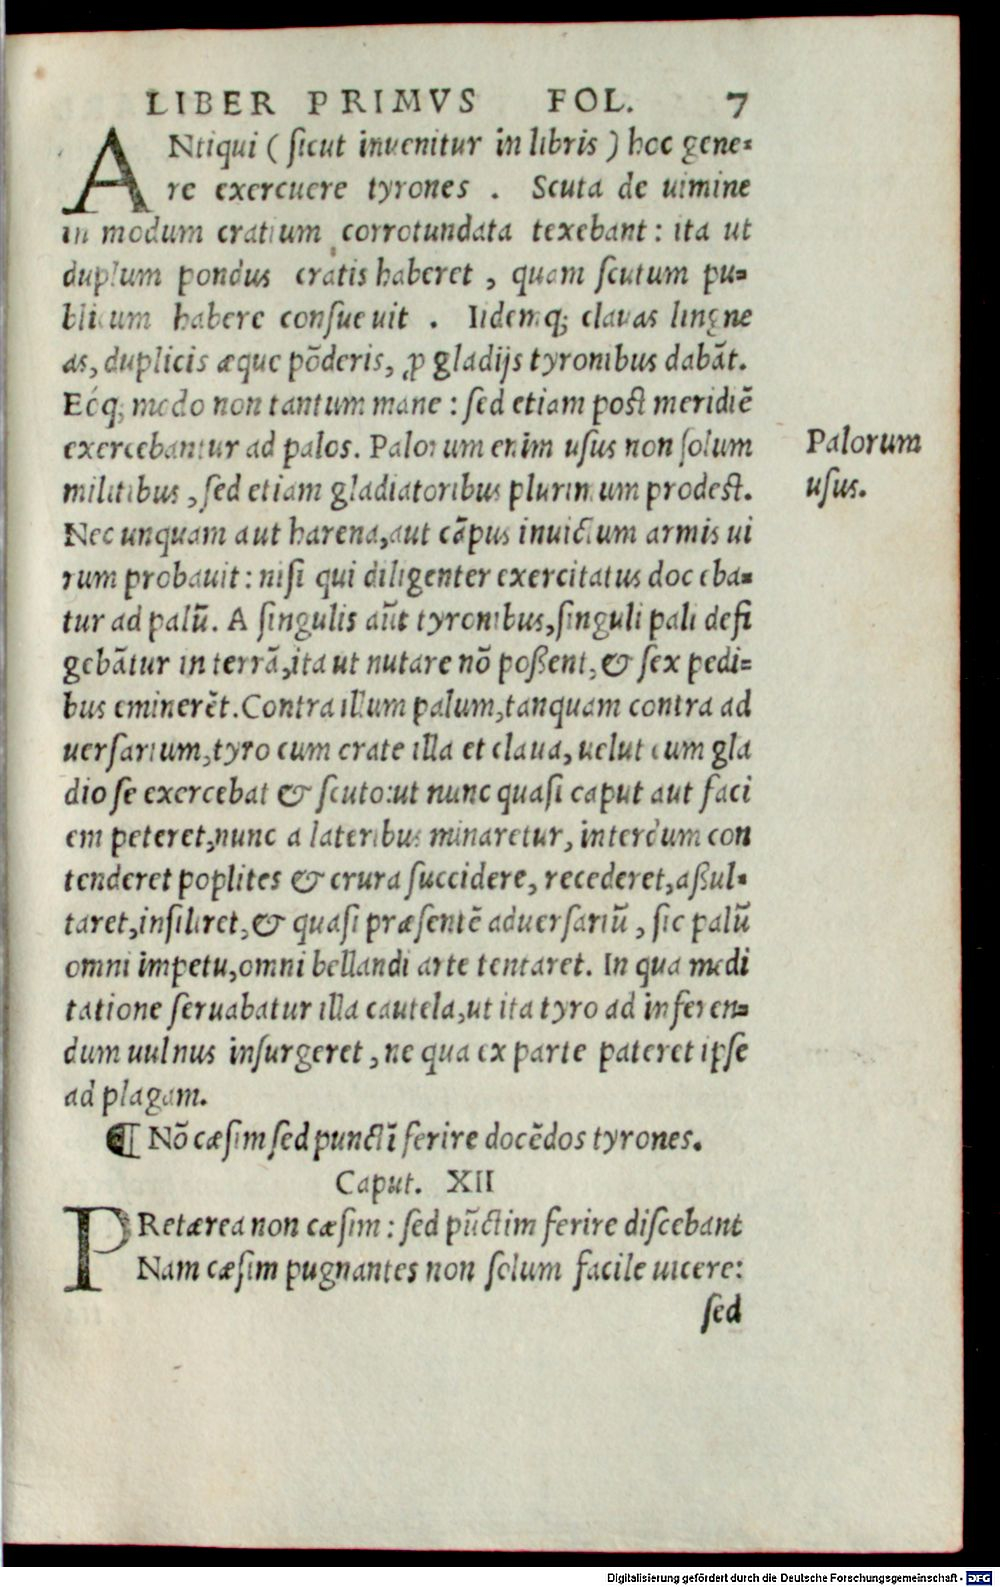 LIBER PRIMVS FOL. 7
ANtiqui ( sicut inuenitur in libris ) hoc gene-
re exercuere tyrones . Scuta de uimine
in modum cratium corrotundata texebant : ita ut
duplum pondus cratis haberet , quam scutum pu-
blicum habere consueuit . Iidemq; clauas ligne
as, duplicis æque põderis, ꝓ gladijs tyronibus dabãt.
Eóq; modo non tantum mane : sed etiam post meridiẽ
exercebantur ad palos. Palorum enim usus non solum
militibus , sed etiam gladiatoribus plurimum prodest.
Nec unquam aut harena, aut cãpus inuictum armis ui
rum probauit : nisi qui diligenter exercitatus doceba-
tur ad palũ. A singulis aũt tyronibus, singuli pali defi
gebãtur in terrã, ita ut nutare nõ poßent, & sex pedi-
bus eminerẽt. Contra illum palum, tanquam contra ad
uersarium, tyro cum crate illa et claua, uelut cum gla
dio se exercebat & scuto: ut nunc quasi caput aut faci
em peteret, nunc a lateribus minaretur, interdum con
tenderet poplites & crura succidere, recederet, aßul-
taret, insiliret, & quasi præsentẽ aduersariũ , sic palũ
omni impetu, omni bellandi arte tentaret. In qua medi
tatione seruabatur illa cautela, ut ita tyro ad inferen-
dum uulnus insurgeret , ne qua ex parte pateret ipse
ad plagam.
¶ Nõ cæsim sed punctĩ ferire docẽdos tyrones.
Caput. XII
PRetærea non cæsim : sed pũctim ferire discebant
Nam cæsim pugnantes non solum facile uicere:
sed
Palorum
usus.
Digitalisierung gefördert durch die Deutsche Forschungsgemeinschaft - DFG